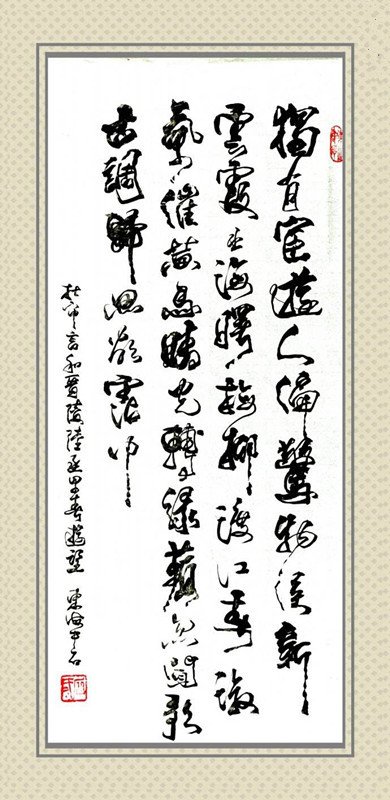 獨有宦遊人偏驚物候新
雲霞出海曙梅柳渡江春淑
氣催黃鳥晴光轉綠蘋忽聞歌
古調歸思欲霑巾
杜审言和晉陵陸丞早春遊望 東海